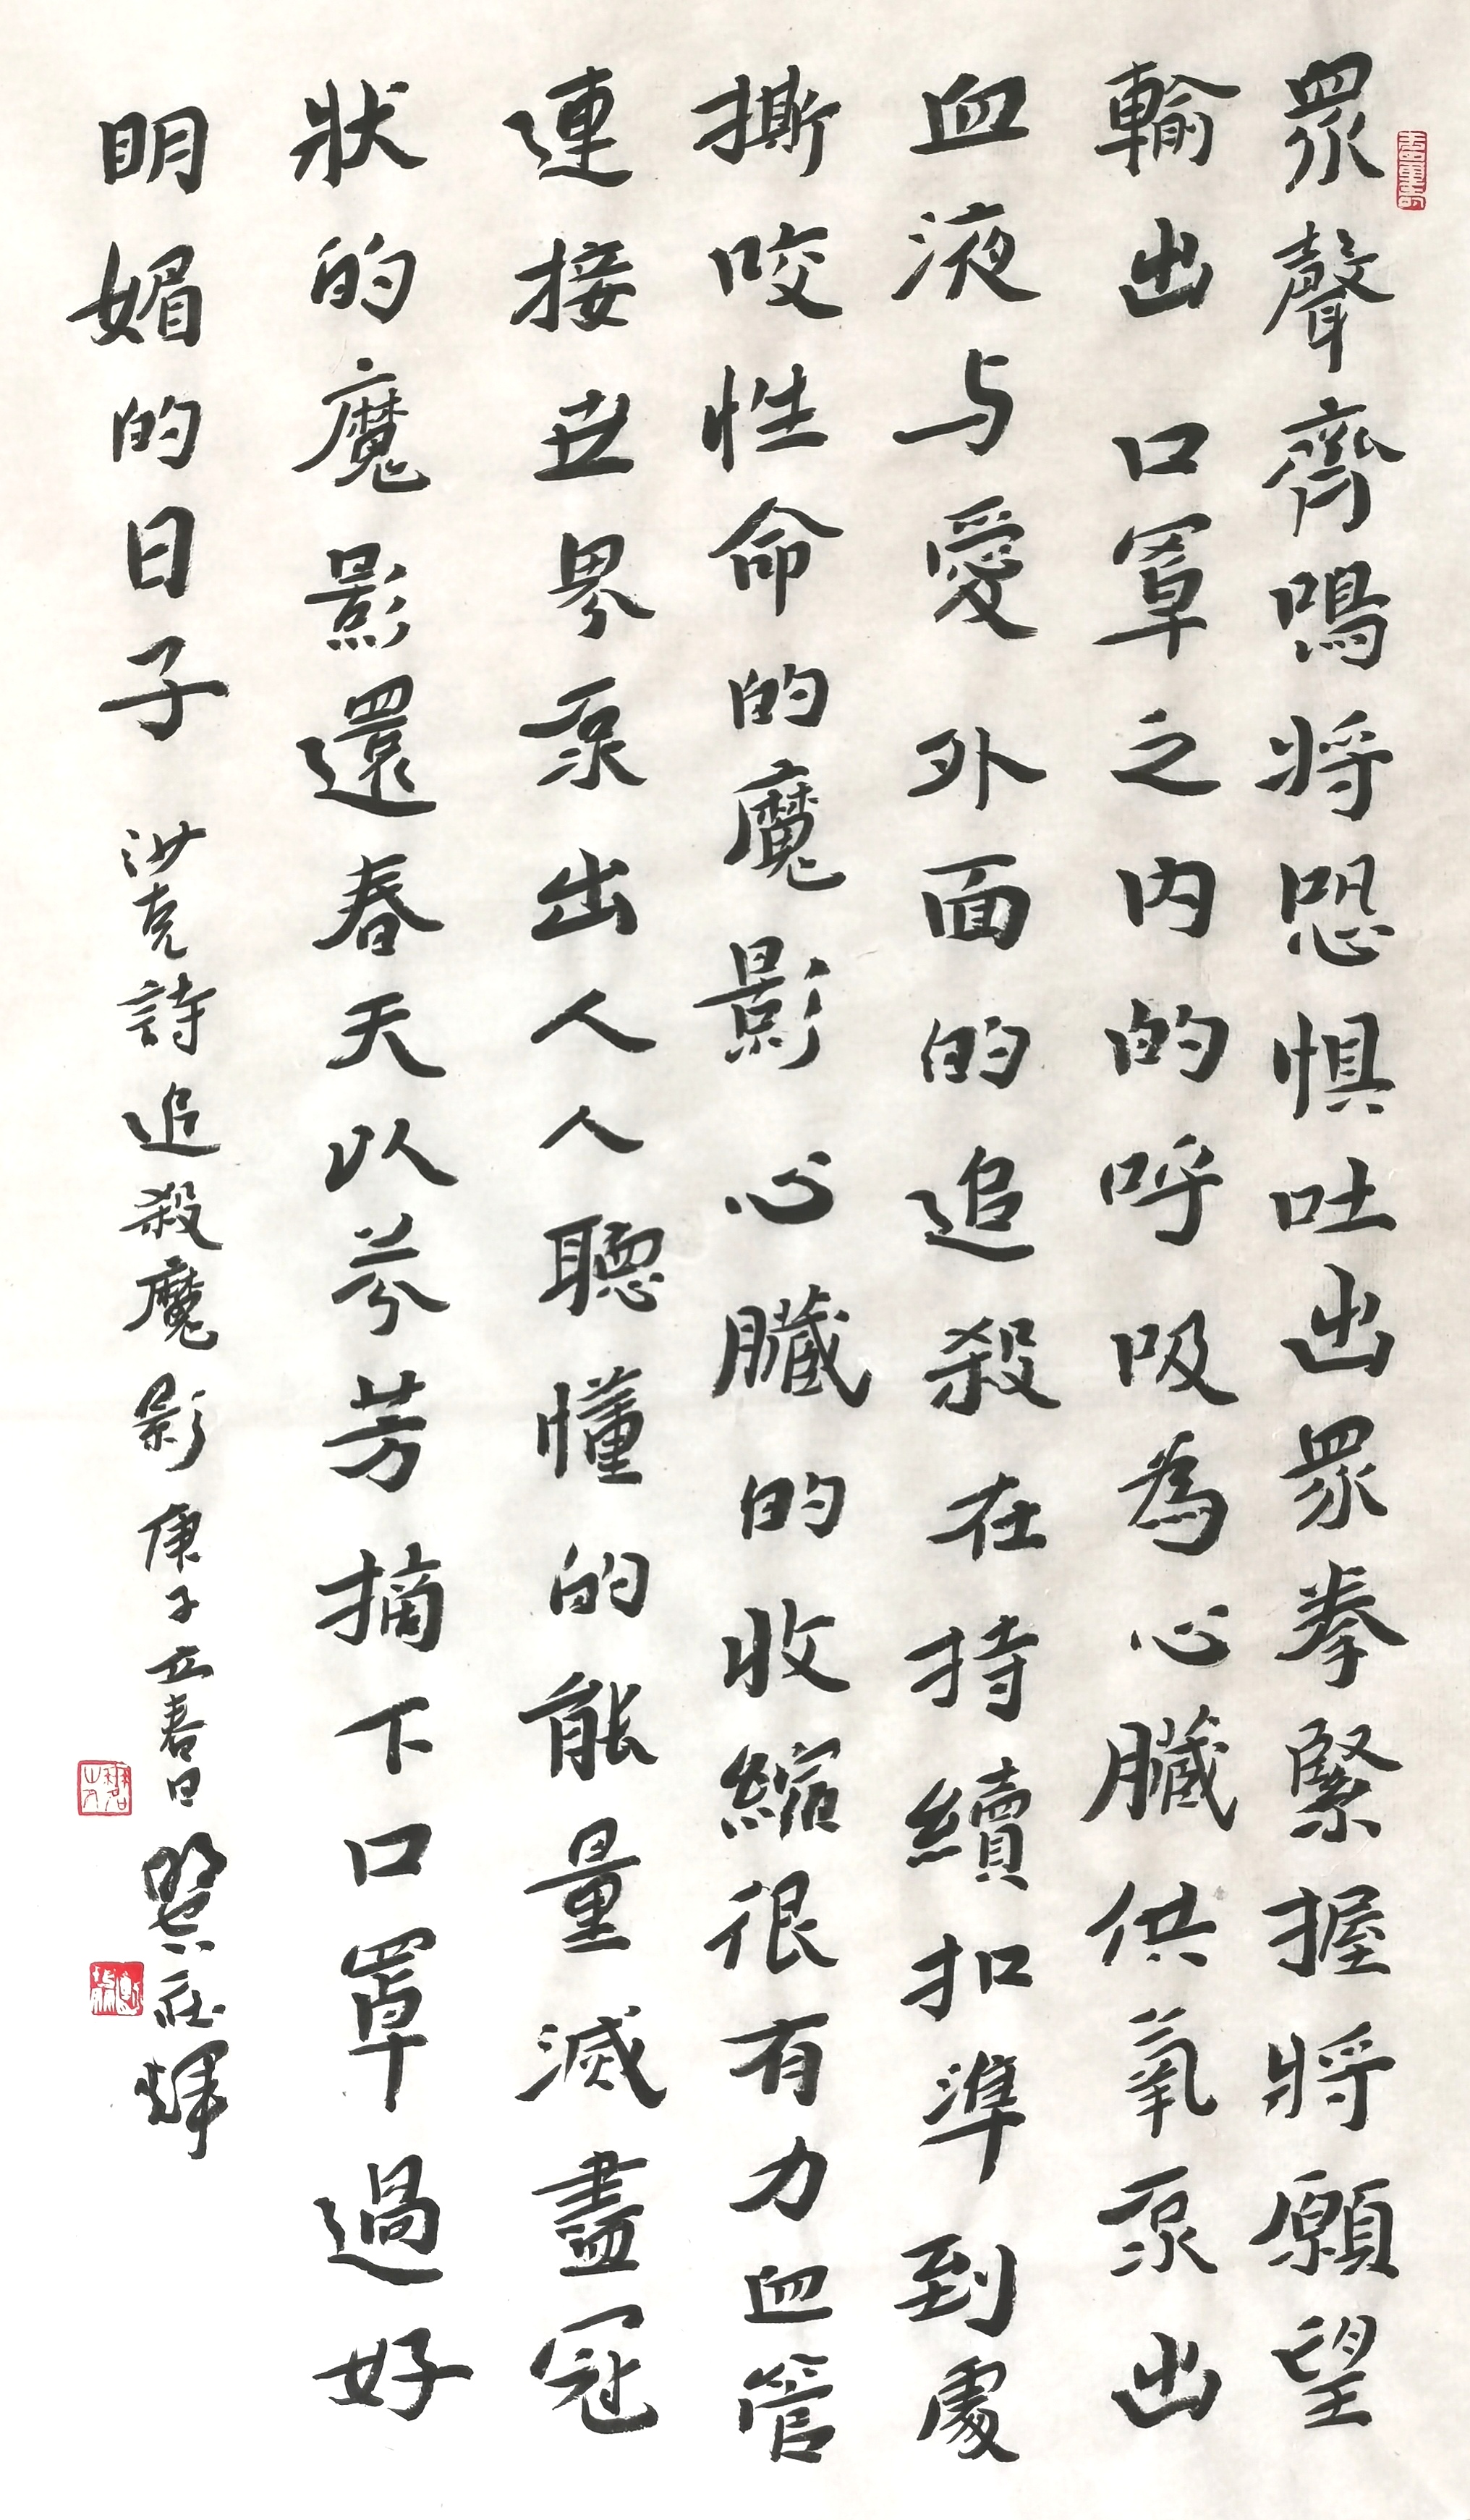 眾聲齊鳴將恐懼吐出眾拳緊握將願望
輸出口罩之内的呼吸為心臟供氧泵出
血液与愛外面的追殺在持續扣準到處
撕咬性命的魔影心臟的收縮很有力血管
連接世界泵出人人聽懂的能量滅盡冠
狀的魔影還春天以芬芳摘下口罩過好
明媚的日子
沙克詩追殺魔影庚子立春日